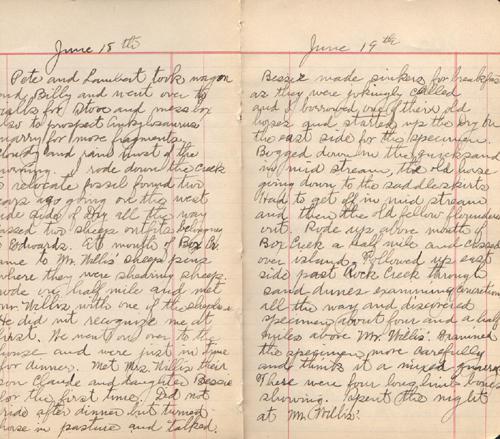 June 18th
Pete and Lambert took wagon
and Billy and went over to
for Stove and mess box
also to prospect Ankylosaurus
quarry for more fragments.
Cloudy and rain most of the
morning. I rode down the Creek
to relocate fossil found two
years ago going on the west
side of Dry all the way
passed two sheep outfits belonging
to Edwards. At mouth of Box Cr.
came to Mr. Willis' sheep pens
where they were shedring sheep.
rode on half mile and met
Mr. Willis with one of the
He did not recognize me at
first. We went on over to the
house and were just in time
for dinner. Met Mrs. Willis their
son Claude and daughter Bessie
for the first time. Did not
ride after dinner but turned
horse in pasture and talked.
June 19th
Bessie made sinkers for breakfast
as they were jokingly called
and I borrowed one of their old
horses and started up the Dry on
the east side for the specimen.
Bogged down in the quicksand
in mid stream, the old horse
going down to the saddle skirts
Had to get off in mid stream
and then the old fellow floundered
out. Rode up above mouth of
Box Creek a half mile and crossed
over island. Followed up east
side past Rock Creek through
sand dunes examining concretions
all the way and discovered
specimen about four and a half
miles above Mr. Willis'. Examined
the specimen more carefully
and think it a mixed
There were four long limb bones
showing. Spent the night
at Mr. Willis'.